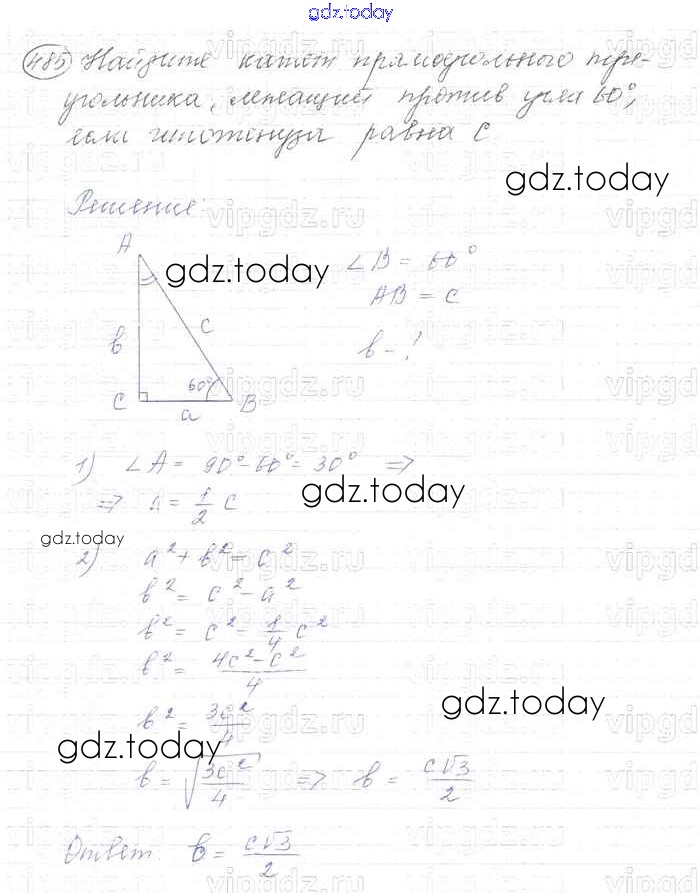 gdz.today
485 Найдите катет прямоугольного тре-
угольника, лежащий против угла 60°,
если гипотенуза равна c
gdz.today
Решение:
vipgdz.ru
A
gdz.today
∠B = 60°
AB = c
b
c
b - ?
60°
C
a
B
1) ∠A = 90° - 60° = 30° =>
=> a = 1/2 c
gdz.today
gdz.today
2) a² + b² = c²
b² = c² - a²
b² = c² - 1/4 c²
b² = (4c² - c²)/4
gdz.today
b² = 3c²/4
gdz.today
b = √(3c²/4) => b = c√3/2
Ответ: b = c√3/2